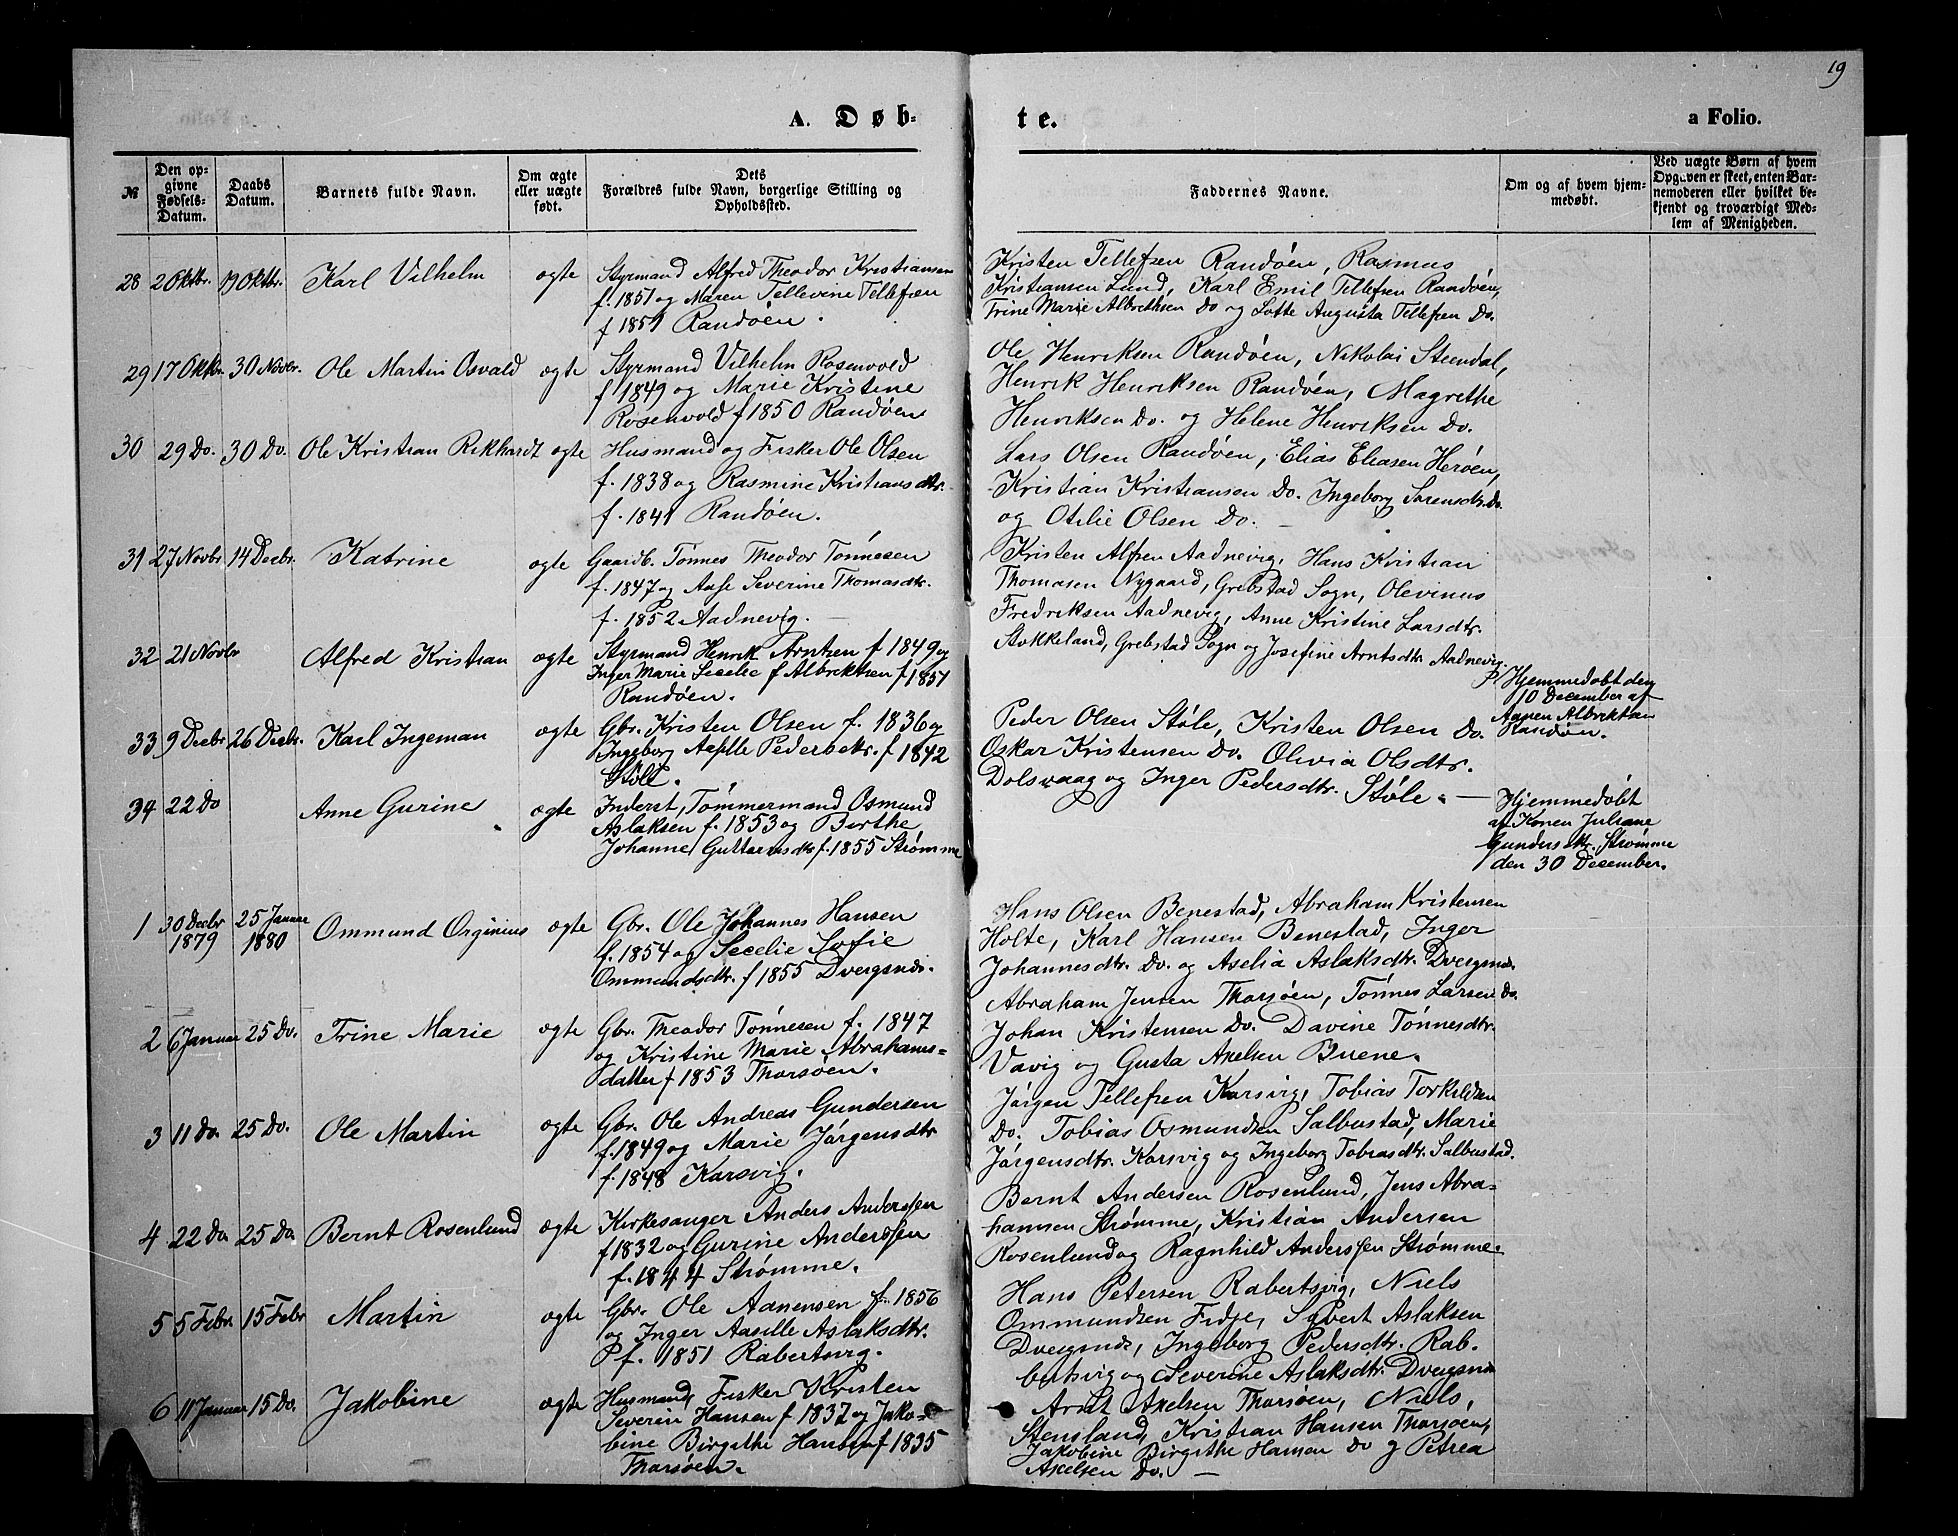 19
A. Døb-
te.
a Folio.
№
Den op-
givne
Fødsels-
Datum.
Daabs
Datum.
Barnets fulde Navn.
Om ægte
eller uægte
født.
Dets
Forældres fulde Navn, borgerlige Stilling og
Opholdssted.
Faddernes Navne.
Om og af hvem hjem-
medøbt.
Ved uægte Børn af hvem
Opgaven er skeet, enten Bar-
nemoderen eller hvilket be-
kjendt og troværdigt Med-
lem af Menigheden.
28 2 Oktbr. 19 Oktbr. Karl Vilhelm ægte
Styrmand Alfred Theodor Kristiansen
f. 1851 og Maren Tellevine Tellefsen
f 1851 Randøen.
Kristen Tellefsen Randøen, Rasmus
Kristiansen Lund, Karl Emil Tellefsen Randøen,
Trine Marie Albrethsen Do og Lotte Augusta Tellefsen Do.
29 17 Oktbr. 30 Novbr. Ole Martin Osvald ægte
Styrmand Vilhelm Rosenvold
f 1849 og Marie Kristine
Rosenvold f 1850 Randøen
Ole Henriksen Randøen, Nikolai Steendal,
Henrik Henriksen Randøen, Magrethe
Henriksen Do. og Helene Henriksen Do.
30 29 Do. 30 Do. Ole Kristian Rikhardt ægte
Husmand og Fisker Ole Olsen
f. 1838 og Rasmine Kristiansdtr.
f. 1841 Randøen.
Lars Olsen Randøen, Elias Eliasen Herøen,
Kristian Kristiansen Do. Ingeborg Sørensdtr. Do
og Otilie Olsen Do. —
31 27 Novbr 14 Decbr. Katrine ægte
Gaardb. Tønnes Theodor Tønnesen
f. 1847 og Aase Severine Thomasdtr.
f. 1852 Aadnevig. —
Kristen Alfsen Aadnevig, Hans Kristian
Thomasen Nygaard, Grebstad Sogn, Olevinus
Fredriksen Aadnevig, Anne Kristine Larsdtr.
Stokkeland, Grebstad Sogn og Josefine Arntsdtr Aadnevig.
32 21 Novbr Alfred Kristian ægte
Styrmand Henrik Arntsen f 1849 og
Inger Marie Secelie f Albrektsen f 1851
Randøen.
Hjemmedøbt den
10 December af
Aanen Albrektsen
Randøn.
33 9 Decbr 26 Decbr. Karl Ingeman ægte
Gbr. Kristen Olsen f. 1836 og
Ingeborg Aaselle Pedersdtr. f 1842
Støle.
Peder Olsen Støle, Kristen Olsen Do.
Oskar Kristensen Do. Olivia Olsdtr.
Dolsvaag og Inger Pedersdtr. Støle. —
34 22 Do Anne Gurine ægte
Inderst, Tømmermand Osmund
Aslaksen f. 1853 og Berthe
Johanne Guttormsdtr f. 1855 Strømme
Hjemmedøbt
af Konen Juliane
Gundersdtr. Strømme
den 30 December.
1 30 Decbr 1879 25 Januar 1880 Ommund Orginius ægte
Gbr. Ole Johannes Hansen
f. 1854 og Secelie Sofie
Ommundsdtr. f 1855 Dvergsnes.
Hans Olsen Benestad, Abraham Kristensen
Holte, Karl Hansen Benestad, Inger
Johannesdtr. Do. og Aselia Aslaksdtr. Dvergsnes.
2 6 Januar 25 Do. Trine Marie ægte
Gbr. Theodor Tønnesen f. 1847
og Kristine Marie Abrahams-
datter f 1853 Tharsøen.
Abraham Jensen Tharsøen, Tønnes Larsen Do.
Johan Kristensen Do. Davine Tønnesdtr.
Vavig og Gusta Axelsen Buene.
3 11 Do. 25 Do. Ole Martin ægte
Gbr. Ole Andreas Gundersen
f. 1849 og Marie Jørgensdtr
f. 1848 Korsvig.
Jørgen Tellefsen Korsvig, Tobias Torkildsen
Do. Tobias Osmundsen Salbustad, Marie
Jørgensdtr. Korsvig og Ingeborg Tobiasdtr. Salbustad.
4 22 Do 25 Do Bernt Rosenlund ægte
Kirkesanger Anders Anderssen
f 1832 og Gurine Anderssen
f. 1844 Strømme.
Bernt Andersen Rosenlund, Jens Abra-
hamsen Strømme, Kristian Andersen
Rosenlund og Ragnhild Anderssen Strømme.
5 5 Febr. 15 Febr Martin ægte
Gbr. Ole Aanensen f. 1856
og Inger Aaselle Aslaksdtr.
f. 1851 Rabertsvig.
Hans Petersen Rabertsvig, Niels
Ommundsen Fidje, Sivert Aslaksen
Dvergsnes, Ingeborg Pedersdtr. Rab-
bertsvig og Severine Aslaksdtr. Dvergsnes
6 11 Januar 15 Do. Jakobine ægte
Husmand, Fisker Kristen
Severin Hansen f 1837 og Jako-
bine Birgithe Hansen f 1835
Tharsøen.
Arnt Axelsen Tharsøen, Niels,
Stensland, Kristian Hansen Tharsøen,
Jakobine Birgithe Hansen Do og Petrea
Axelsen Do. —